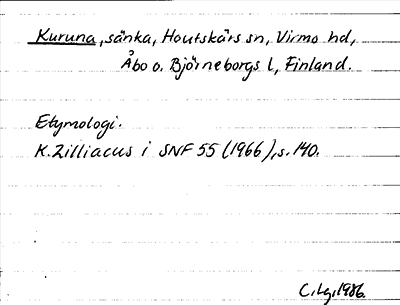 Kuruna, sänka, Houtskärs sn, Virmo hd,
Åbo o. Björneborgs l, Finland.
Etymologi.
K. Zilliacus i SNF 55 (1966), s. 140.
C. Lg, 1986.